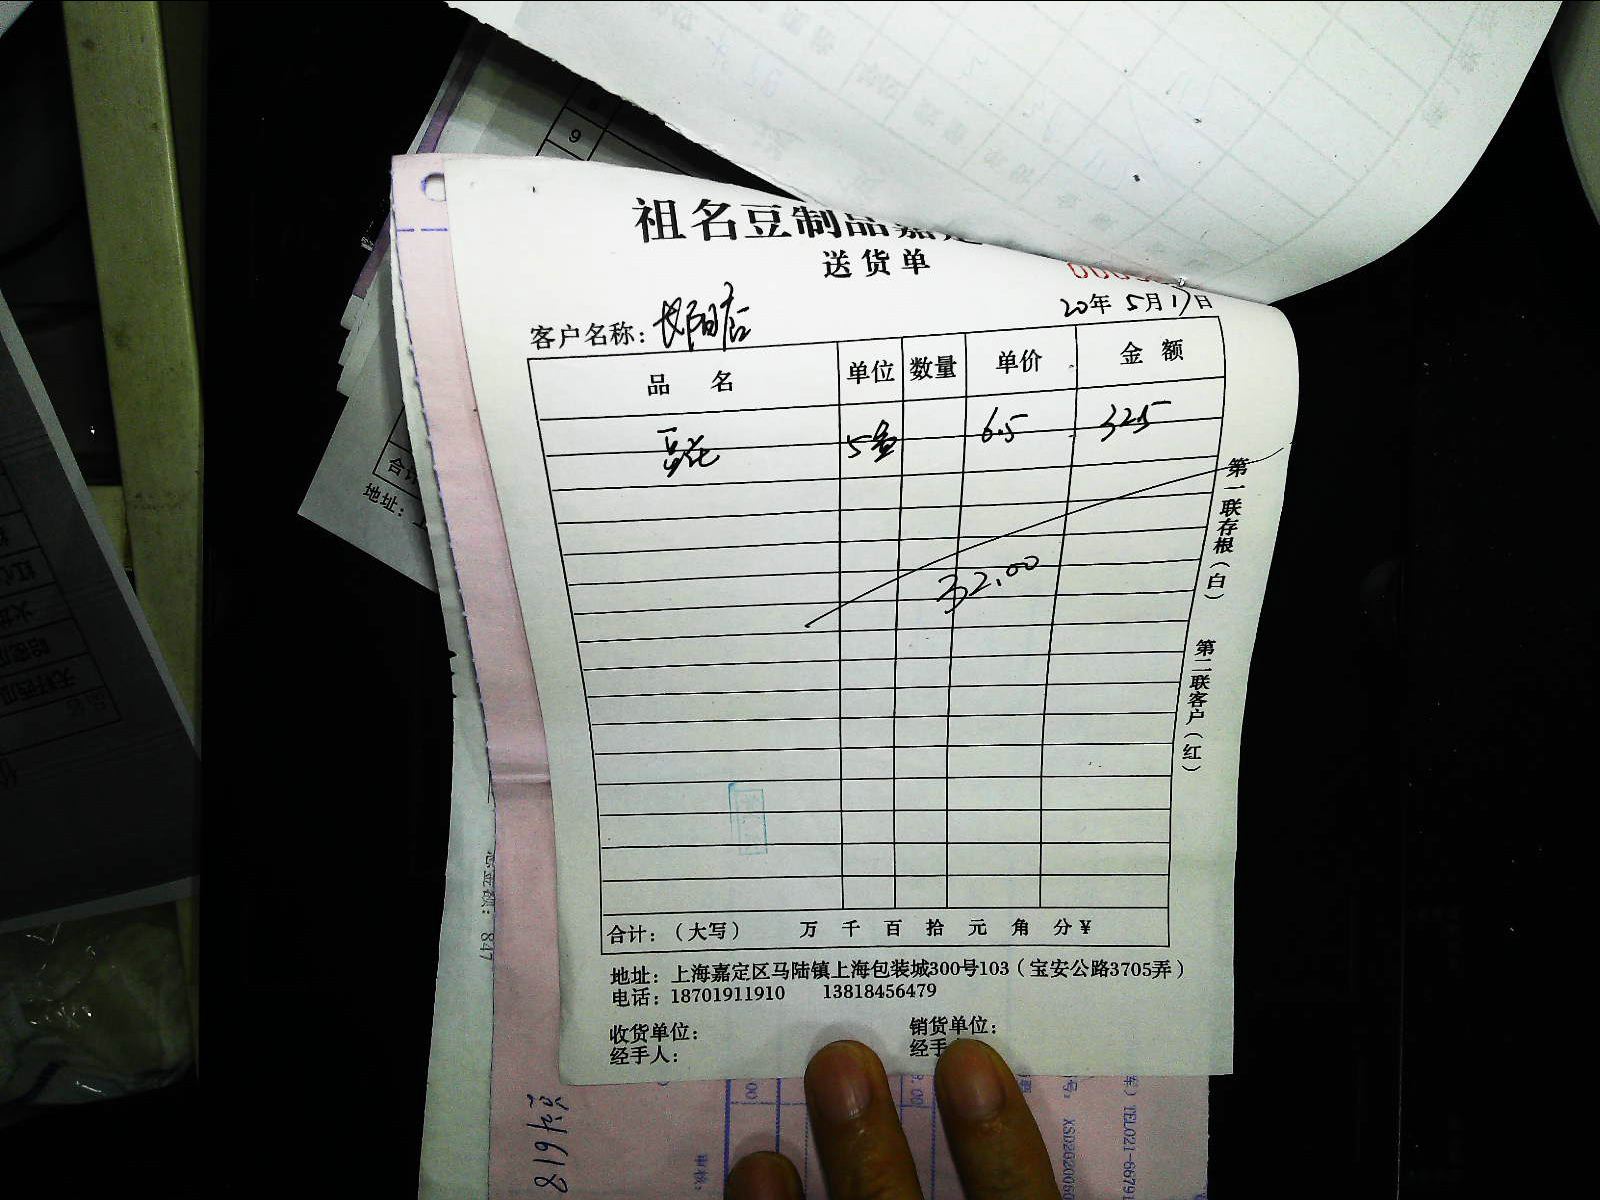 祖名豆制品嘉定
送货单
客户名称：长阳店
20年5月17日
品 名 单位 数量 单价 金 额
豆花 5盒 6.5 32.5
32.00
第一联存根（白） 第二联客户（红）
合计：（大写） 万 千 百 拾 元 角 分¥
地址：上海嘉定区马陆镇上海包装城300号103（宝安公路3705弄）
电话：18701911910 13818456479
收货单位： 销货单位：
经手人： 经手
9
合计
地址：上
总金额：847